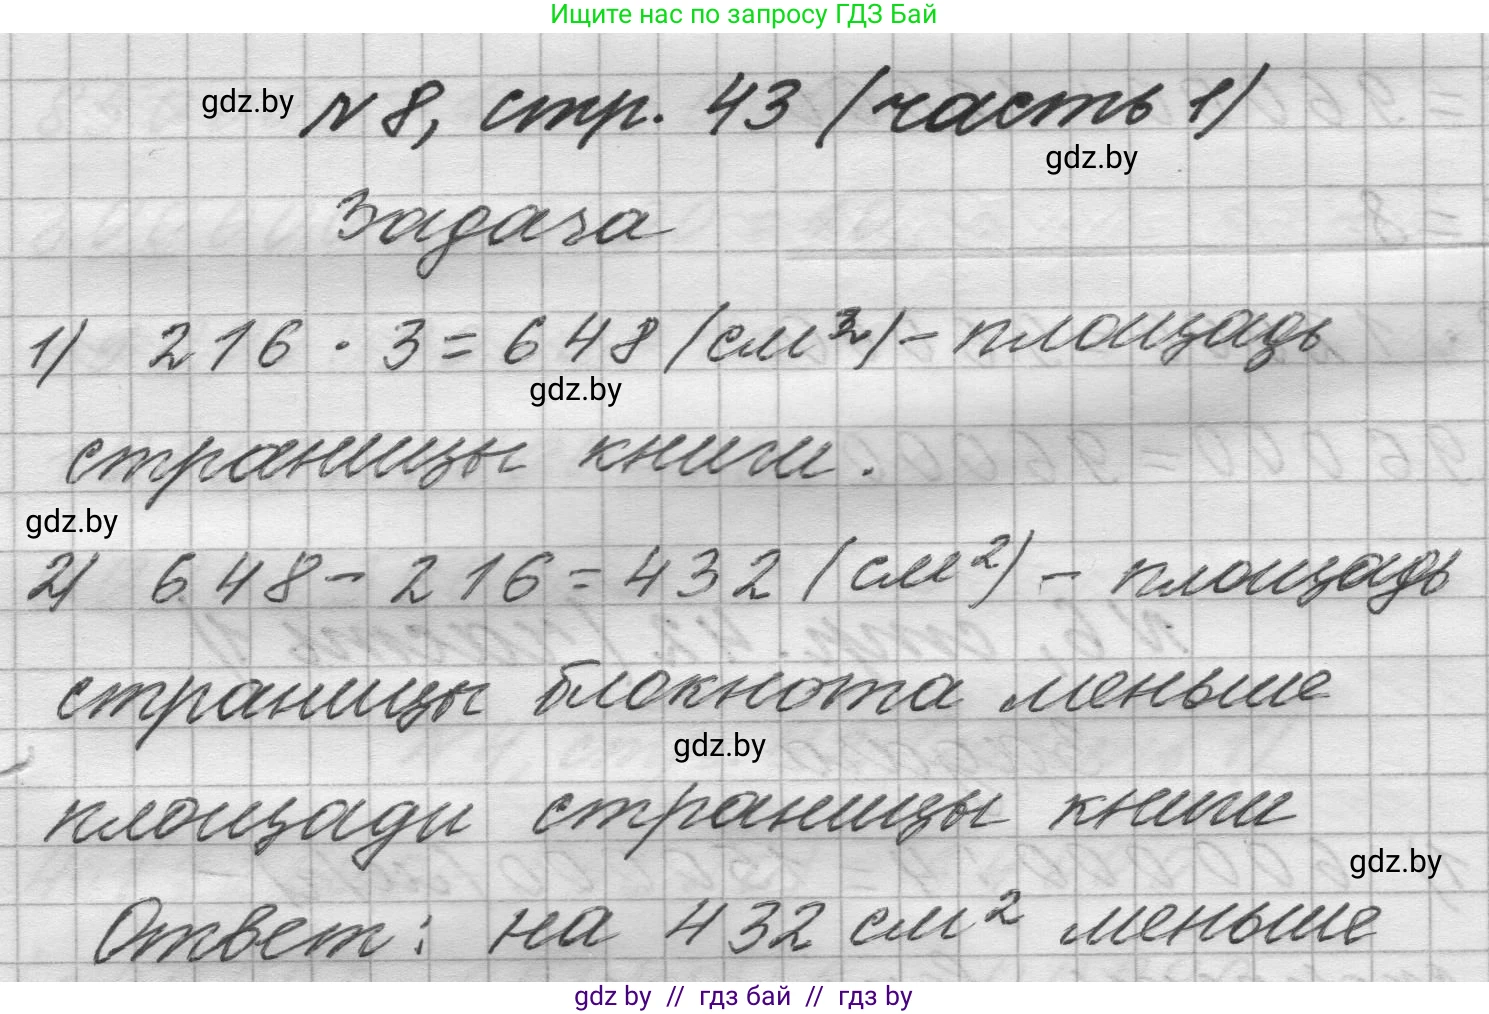 Ищите нас по запросу ГДЗ Бай
gdz.by № 8, стр. 43 (часть 1)
gdz.by
Задача
1) 216 · 3 = 648 (см²) – площадь
gdz.by
страницы книги.
gdz.by
2) 648 – 216 = 432 (см²) – площадь
страницы блокнота меньше
gdz.by
площади страницы книги
gdz.by
Ответ: на 432 см² меньше
gdz by // гдз бай // гдз by